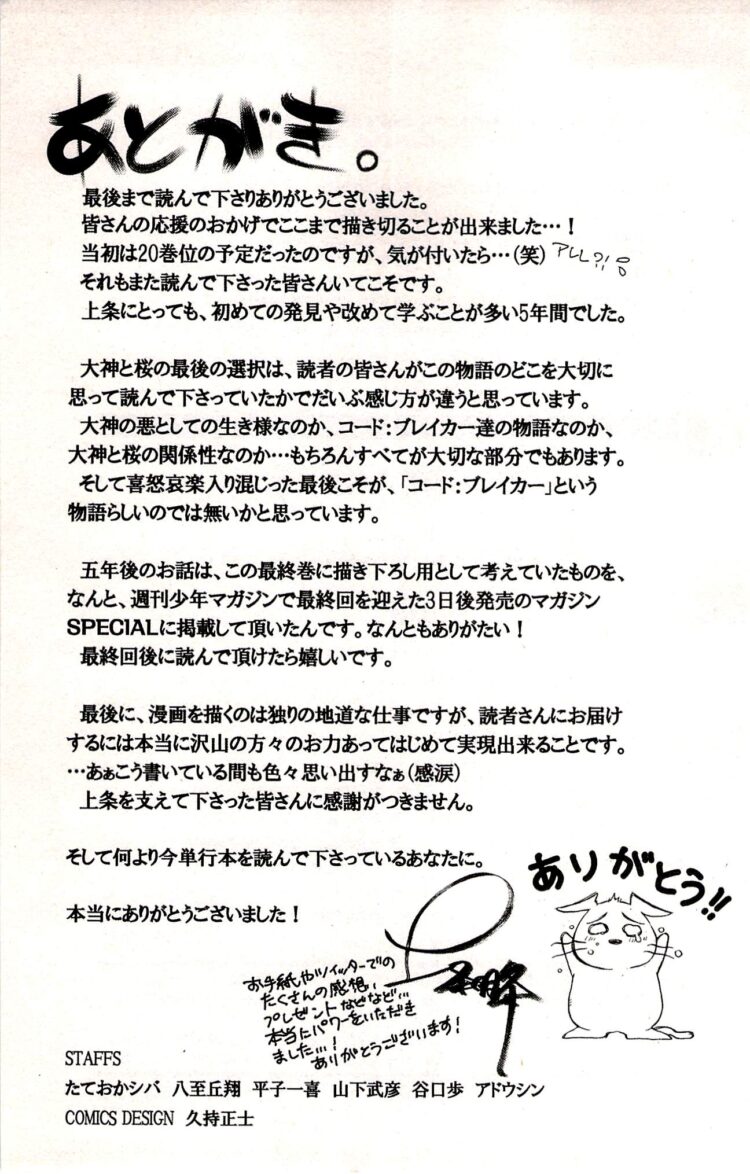 あとがき。
最後まで読んで下さりありがとうございました。
皆さんの応援のおかげでここまで描き切ることが出来ました…！
当初は20巻位の予定だったのですが、気が付いたら…(笑) アレレ?!
それもまた読んで下さった皆さんいてこそです。
上条にとっても、初めての発見や改めて学ぶことが多い5年間でした。
大神と桜の最後の選択は、読者の皆さんがこの物語のどこを大切に
思って読んで下さっていたかでだいぶ感じ方が違うと思っています。
大神の悪としての生き様なのか、コード：ブレイカー達の物語なのか、
大神と桜の関係性なのか…もちろんすべてが大切な部分でもあります。
そして喜怒哀楽入り混じった最後こそが、「コード：ブレイカー」という
物語らしいのでは無いかと思っています。
五年後のお話は、この最終巻に描き下ろし用として考えていたものを、
なんと、週刊少年マガジンで最終回を迎えた3日後発売のマガジン
SPECIALに掲載して頂いたんです。なんともありがたい！
最終回後に読んで頂けたら嬉しいです。
最後に、漫画を描くのは独りの地道な仕事ですが、読者さんにお届け
するには本当に沢山の方々のお力あってはじめて実現出来ることです。
…あぁこう書いている間も色々思い出すなぁ(感涙)
上条を支えて下さった皆さんに感謝がつきません。
そして何より今単行本を読んで下さっているあなたに。
本当にありがとうございました！
ありがとう!!
お手紙やツイッターでの
たくさんの感想、
プレゼントなどなど…
本当にパワーをいただき
ました…！
ありがとうございます！
STAFFS
たておかシバ 八至丘翔 平子一喜 山下武彦 谷口歩 アドウシン
COMICS DESIGN 久持正士